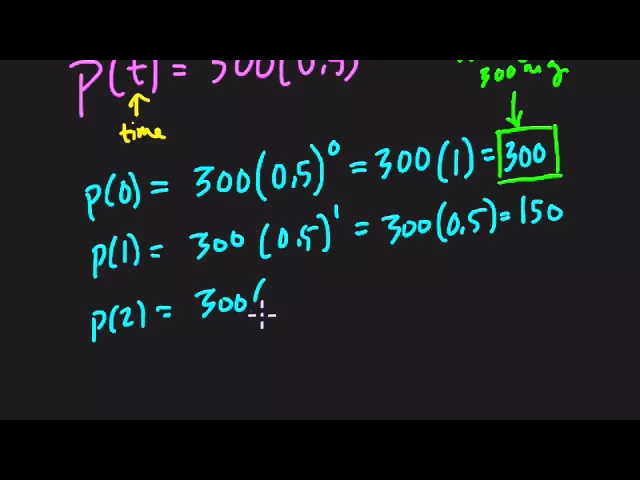 P(t) = 300(0.5)
300 mg
time
P(0) = 300(0.5)^0 = 300(1) = 300
P(1) = 300(0.5)^1 = 300(0.5) = 150
P(2) = 300(